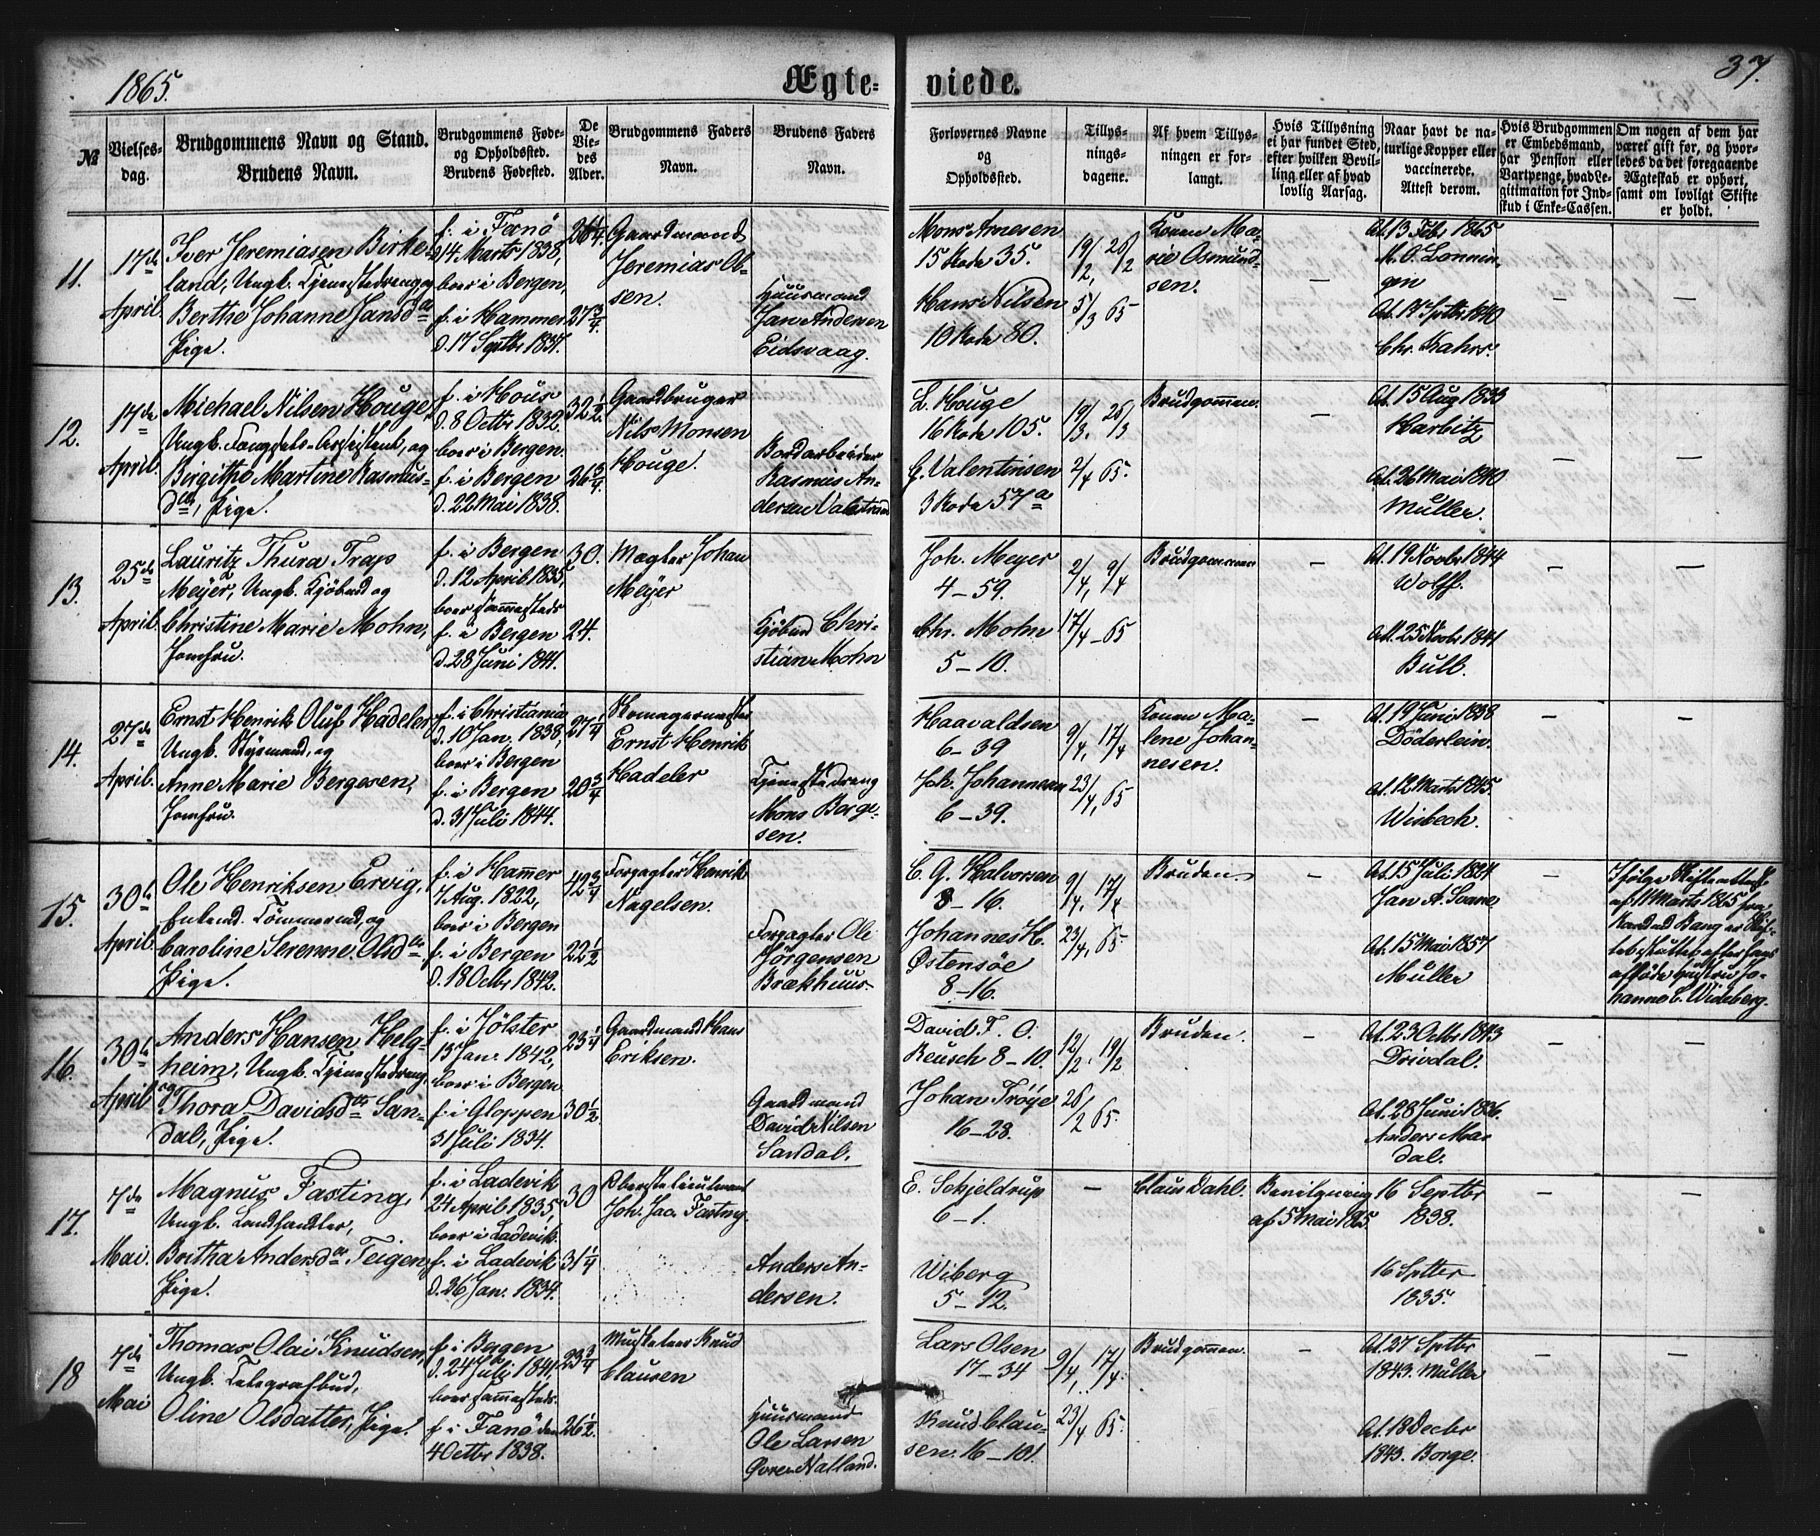 1865.
Ægte-
viede.
37.
№
Vielses-
dag.
Brudgommens Navn og Stand.
Brudens Navn.
Brudgommens Føde-
og Opholdssted.
Brudens Fødested.
De
Vie-
des
Alder.
Brudgommens Faders
Navn.
Brudens Faders
Navn.
Forlovernes Navne
og
Opholdssted.
Tillys-
nings-
dagene.
Af hvem Tillys-
ningen er for-
langt.
Hvis Tillysning
ei har fundet Sted,
efter hvilken Bevil-
ling eller af hvad
lovlig Aarsag.
Naar havt de na-
turlige Kopper eller
vaccinerede.
Attest derom.
Hvis Brudgommen
er Embedsmand,
har Pension eller
Vartpenge, hvad Le-
gitimation for Ind-
skud i Enke-Cassen.
Om nogen af dem har
været gift før, og hvor-
ledes da det foregaaende
Ægteskab er ophørt,
samt om lovligt Skifte
er holdt.
11.
17de
April.
Iver Jeremiasen Birke-
land, Ungk. Tjenestedreng, og
Berthe Johanne Jansd.
Pige.
f. i Fanø
d 14 Marts 1838,
boer i Bergen,
f. i Hammer
d. 17 Septbr 1837.
27 3/4.
Gaardmand
Jeremias Ol-
sen.
Huusmand
Jan Andersen
Eidsvaag.
Mons Arnesen
15 Rode 35.
Hans Nilsen
10 Rode 80.
19/2, 26/2
5/3 65
Konen Ma-
rie Osmund-
sen.
—
At. 13 Febr. 1865
M. O. Lonnin-
gen
At. 19 Septbr 1840
Chr. Kahrs.
—
—
12.
17de
April.
Michael Nilsen Houge,
Ungk. Fængsels-Assistent, og
Bergithe Martine Rasmus-
d., Pige.
f. i Hous
d. 8 Octbr 1832.
boer i Bergen.
f. i Bergen
d. 22 Mai 1838.
32 1/2.
26 3/4.
Gaardbruger
Nils Monsen
Houge.
Bordarbeider
Rasmus An-
dersen Valestrand
L. Houge
16 Rode 105.
G. Valentinsen
3 Rode 57a
19/3, 26/3
2/4 65.
Brudgommen.
—
At. 15 Aug 1833
Harbitz
At. 26 Mai 1840
Müller.
—
—
13.
25de
April.
Lauritz Thura Trap
Meyer, Ungk. Kjøbmd og
Christine Marie Mohn,
Jomfru.
f. i Bergen
d. 12 April 1835,
boer sammesteds
f. i Bergen
d. 28 Juni 1841.
30.
24.
Mægler Johan
Meyer
Kjøbmd Chri-
stian Mohn
Joh. Meyer
4 – 59.
Chr. Mohn
5 – 10.
2/4, 9/4
17/4 – 65
Brudgommen
—
At. 19 Novbr 1844
Wolff.
Att. 25 Novbr 1841
Bull
—
—
14.
27de
April.
Ernst Henrik Oluf Hadeler,
Ungk. Styrmand, og
Anne Marie Bergesen,
Jomfru.
f. i Christiania
d. 10 Jan. 1838,
boer i Bergen
f. i Bergen
d. 31 Juli 1844.
27 1/4
20 3/4
Ernst Henrik
Hadeler
Tjenestedreng
Mons Berge-
sen.
Haavaldsen
6 – 39
Joh. Johannesen
6 – 39.
9/4, 17/4
23/4, 65
Konen Ma-
lene Johan-
nesen.
—
At. 19 Juni 1838
Döderlein.
At. 12 Marts 1845.
Wisbech.
—
—
15.
30te
April.
Ole Henriksen Ervig,
Enkemd. Tømmermd, og
Caroline Serenne Olsd.
Pige.
f. i Hammer
7 Aug. 1822,
boer i Bergen
f. i Bergen
d. 18 Octbr 1842.
42 3/4
22 1/2
Forpagter Henrik
Nagelsen.
Forpagter Ole
Jörgensen
Brækhuus.
C. G. Halvorsen
8 – 16.
Johannes H.
Østensøe
8 – 16.
9/4, 17/4
23/4, 65.
Bruden.
—
At. 15 Juli 1824
Jan A. Svane
At. 15 Mai 1857
Müller
—
Ifølge Skifteattest
af 11 Marts 1865 fra
afdøde Hustru Jo-
hanne C. Wideberg.
16.
30te
April
Anders Hansen Helg-
heim, Ungk. Tjenestedreng,
og Thora Davidsd. San-
dal, Pige.
f. i Jølster
13 Jan. 1842,
boer i Bergen
f. i Gloppen
31 Juli 1834.
23 1/4
30 1/2
Gaardmand Hans
Eriksen.
Gaardmand
David Nilsen
Sandal.
David. F. O.
Beusch 8 – 10.
Johan Trøye
16 – 28.
12/2, 19/2
26/2 65.
Bruden.
—
At. 23 Octbr 1843
Drivdal.
At. 28 Juni 1836.
Anders Mar-
dal.
—
—
17.
7de
Mai.
Magnus Fasting,
Ungk. Landhandler,
Britha Andersd. Teigen,
Pige.
f. i Ladevik
24 April 1835,
boer i Ladevik.
f. i Ladevik
d. 26 Jan. 1834.
30
31 1/4
Oberstelieutnant
Joh. Jac. Fasting.
Anders An-
dersen.
E. Schjeldrup
6 – 1.
Wiberg
5 – 12.
—
Claus Dahl.
Bevilgning
af 5 Mai 1865
16 Septbr
1838.
16 Septbr
1835.
—
—
18
7de
Mai
Thomas Olai Knudsen,
Ungk. Telegrafbud,
Oline Olsdatter, Pige.
f. i Bergen
d. 24 Juli 1841,
boer sammesteds.
f. i Fanø den
4 Octbr 1838.
23 3/4
26 1/2.
Musketeer Knud
Clausen
Huusmand
Ole Larsen
Øvre Natland.
Lars Olsen
17 – 34
Knud Clau-
sen. 16 – 101.
9/4, 17/4.
23/4 65.
Brudgommen.
—
At. 27 Septbr
1843. Müller
At. 18 Decbr
1843. Borge.
—
—